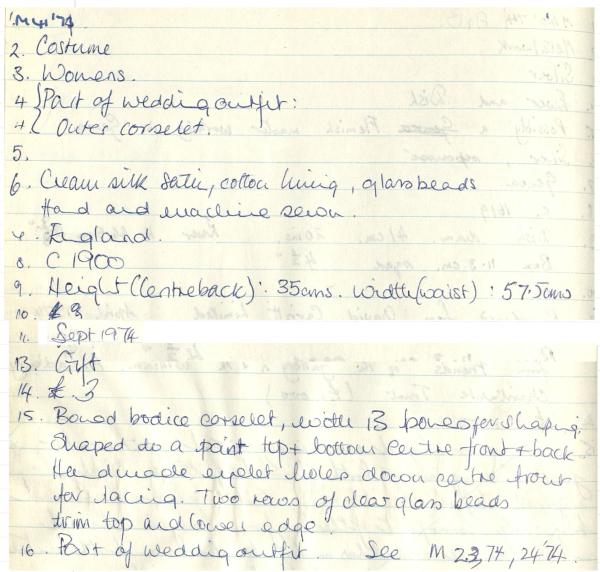 'M41'74
2. Costume
3. Womens.
4 {Part of wedding outfit:
4 { Outer corselet.
5.
6. Cream silk satin, cotton lining, glass beads
Hand and machine sewn.
England.
8. C 1900
9. Height (Centreback): 35cms. width (waist): 57.5cms
10
11. Sept 1974
13. Gift
14. £3
15. Boned bodice corselet, with 13 bones for shaping.
Shaped to a point top + bottom centre front + back.
Handmade eyelet holes down centre front
for lacing. Two rows of clear glass beads
trim top and lower edge.
16. Part of wedding outfit. See M 23,74, 24'74.